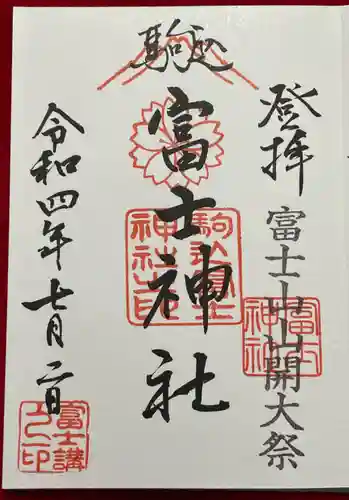 登拝
富士山山開大祭
駒込
富士神社
駒込富士神社之印
富士神社
令和四年七月一日
富士講之印